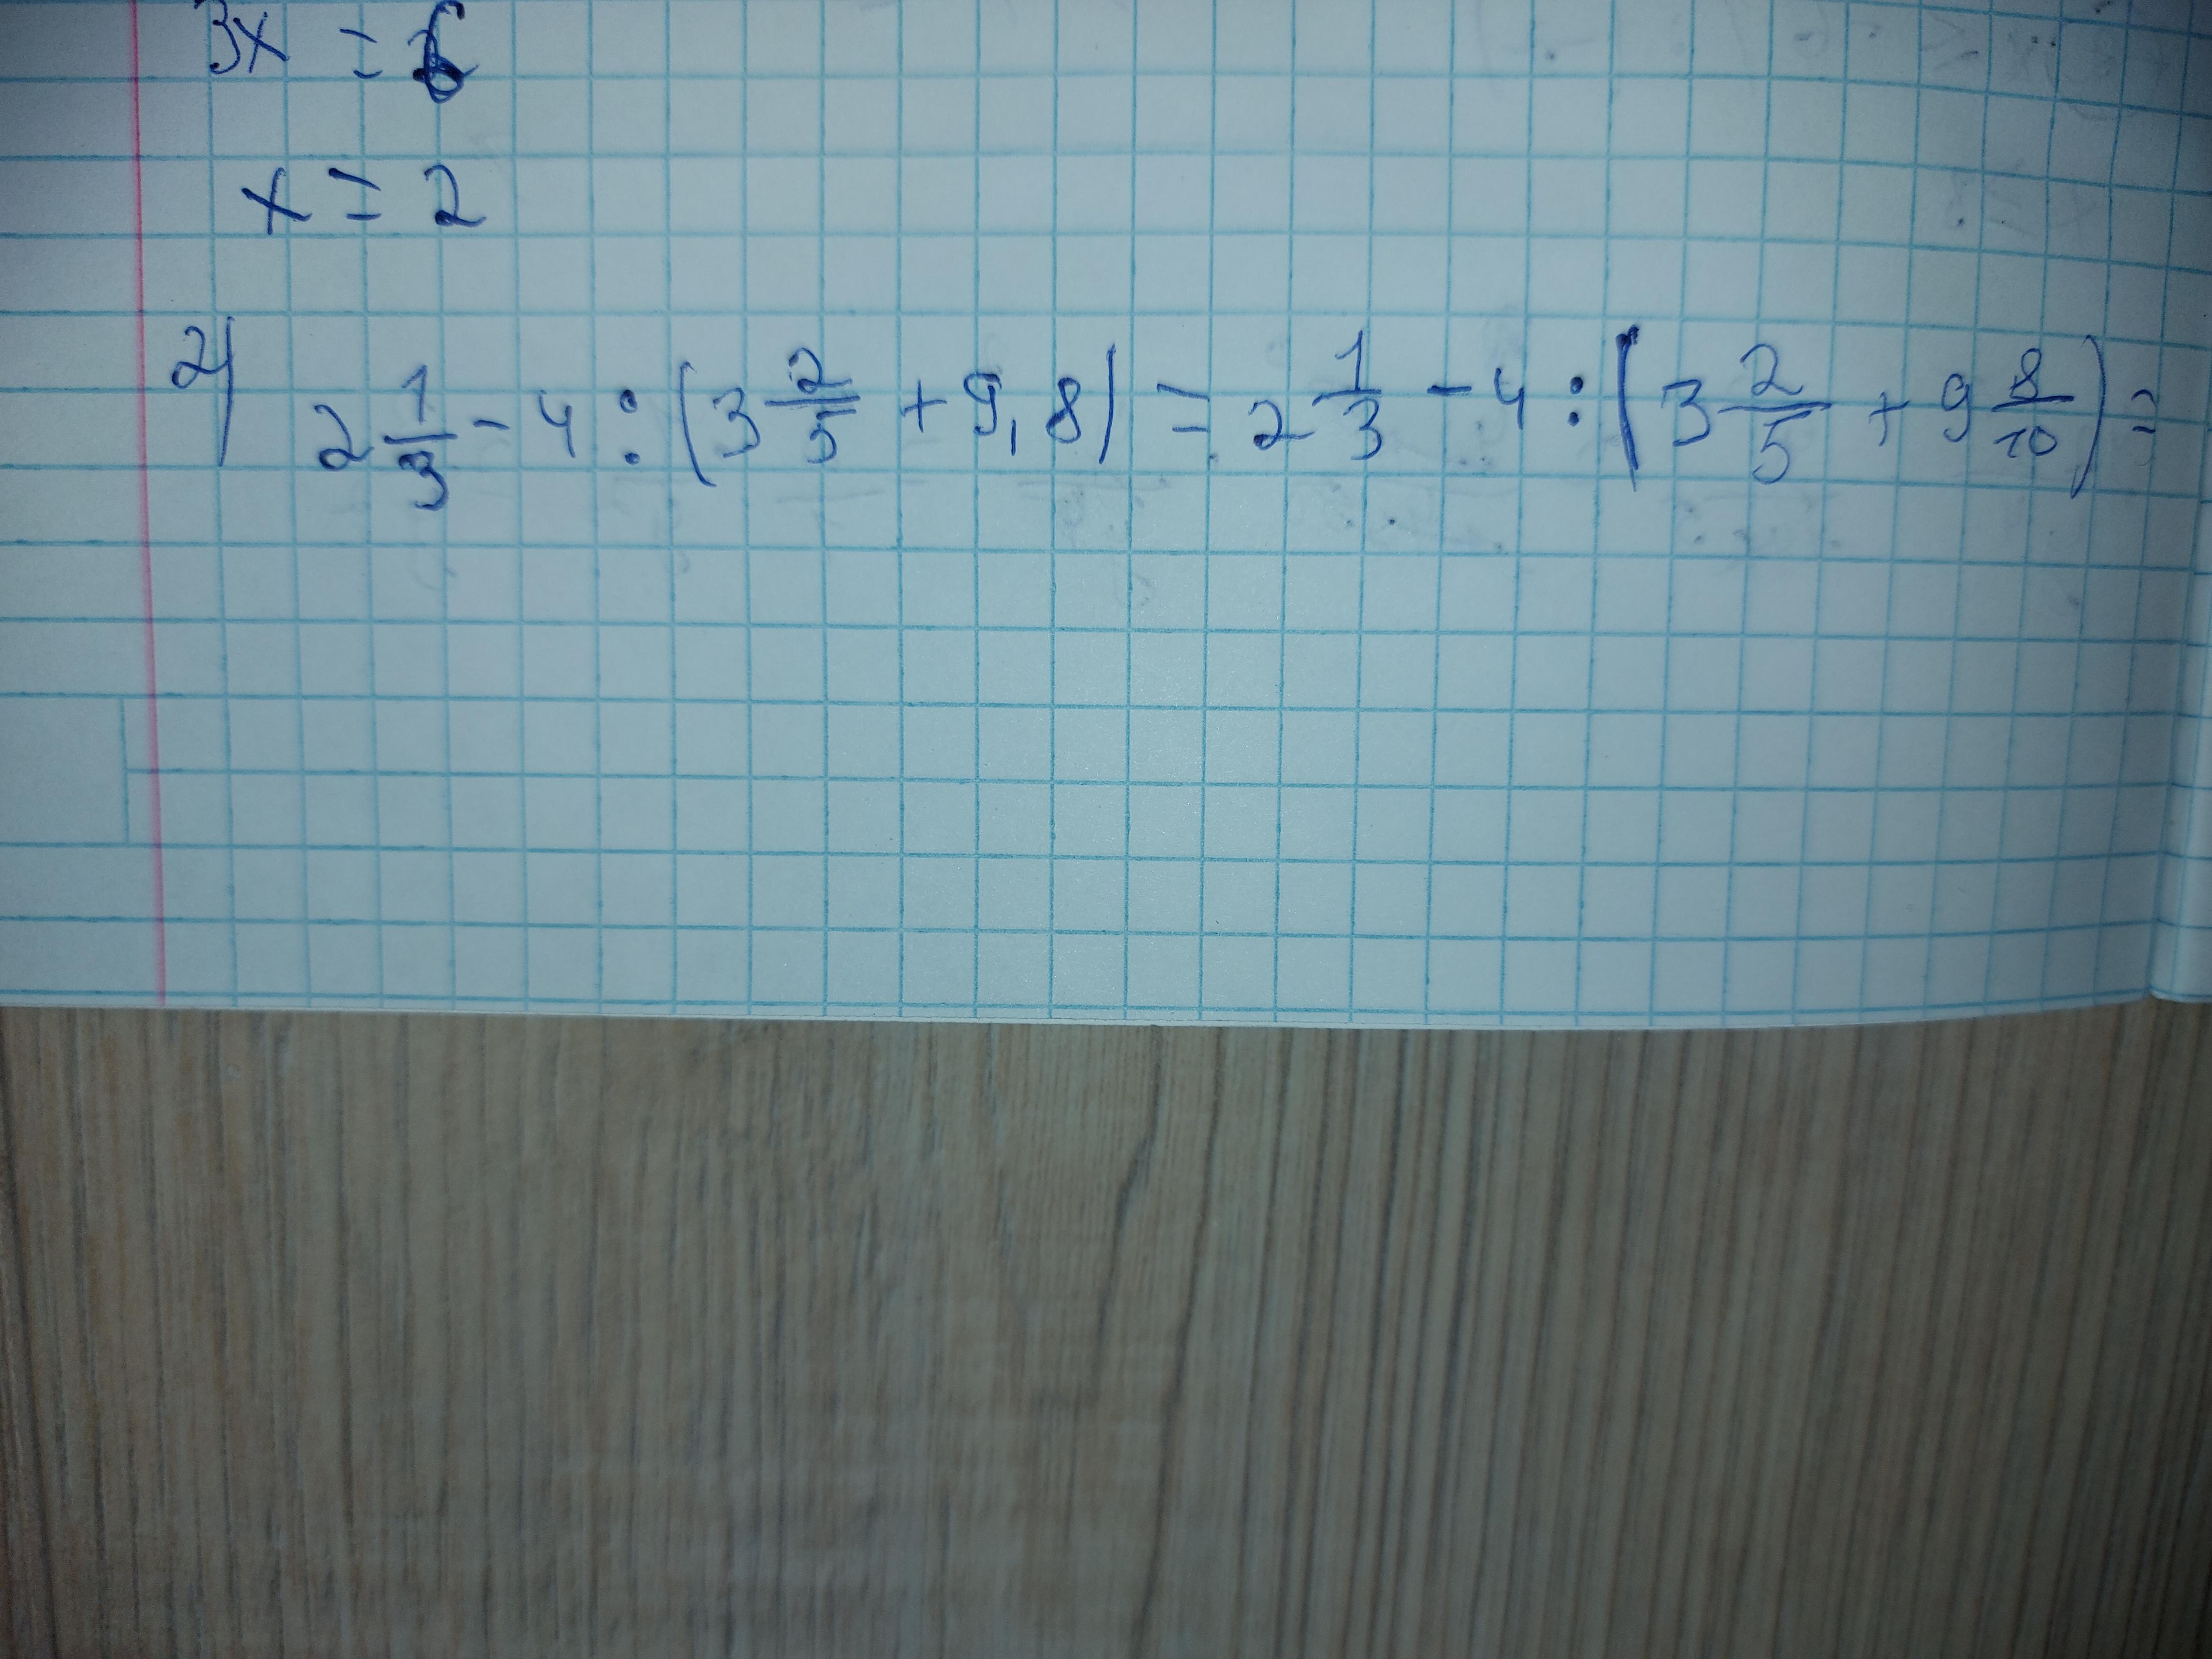 3x = 6
x = 2
2) 2 1/3 - 4 : (3 2/5 + 9,8) = 2 1/3 - 4 : (3 2/5 + 9 8/10) =